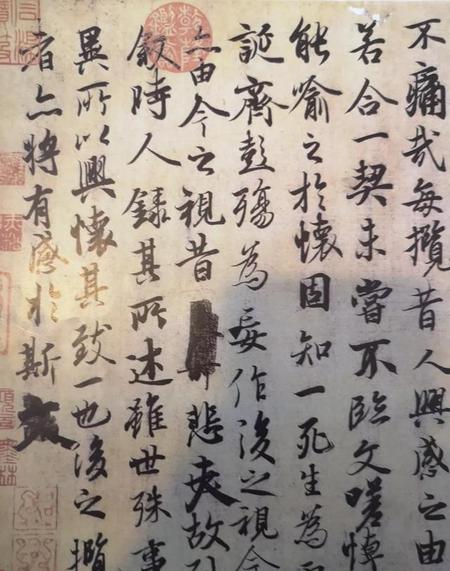 不痛哉每攬昔人興感之由
若合一契未嘗不臨文嗟悼
能喻之於懷固知一死生為
誕齊彭殤為妄作後之視今
亦由今之視昔悲夫故
敘時人錄其所述雖世殊事
異所以興懷其致一也後之攬
者亦將有感於斯文